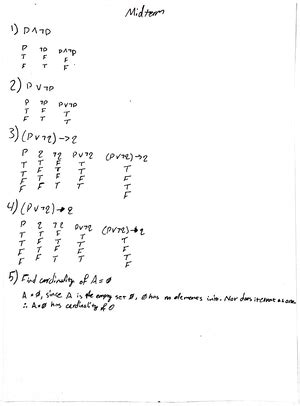 Midterm
1) P∧¬P
P ¬P P∧¬P
T F F
F T F
2) P∨¬P
P ¬P P∨¬P
T F T
F T T
3) (P∨¬q)->q
P q ¬q P∨¬q (P∨¬q)->q
T T F T T
T F T T F
F T F F T
F F T T F
4) (P∨¬q)->q
P q ¬q P∨¬q (P∨¬q)->q
T T F T T
T F T T F
F T F F T
F F T T F
5) Find cardinality of A=∅
A=∅, since A is the empty set ∅, ∅ has no elements into. Nor does
∴ A=∅ has cardinality of 0